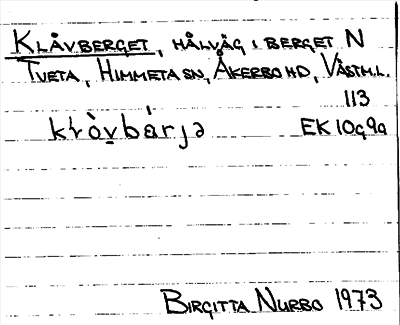 KLÅVBERGET, HÅLVÄG I BERGET N
TVETA, HIMMETA SN, ÅKERBO HD, VÄSTM.L.
113
klòvbárjə EK 10g9a
BIRGITTA NURBO 1973